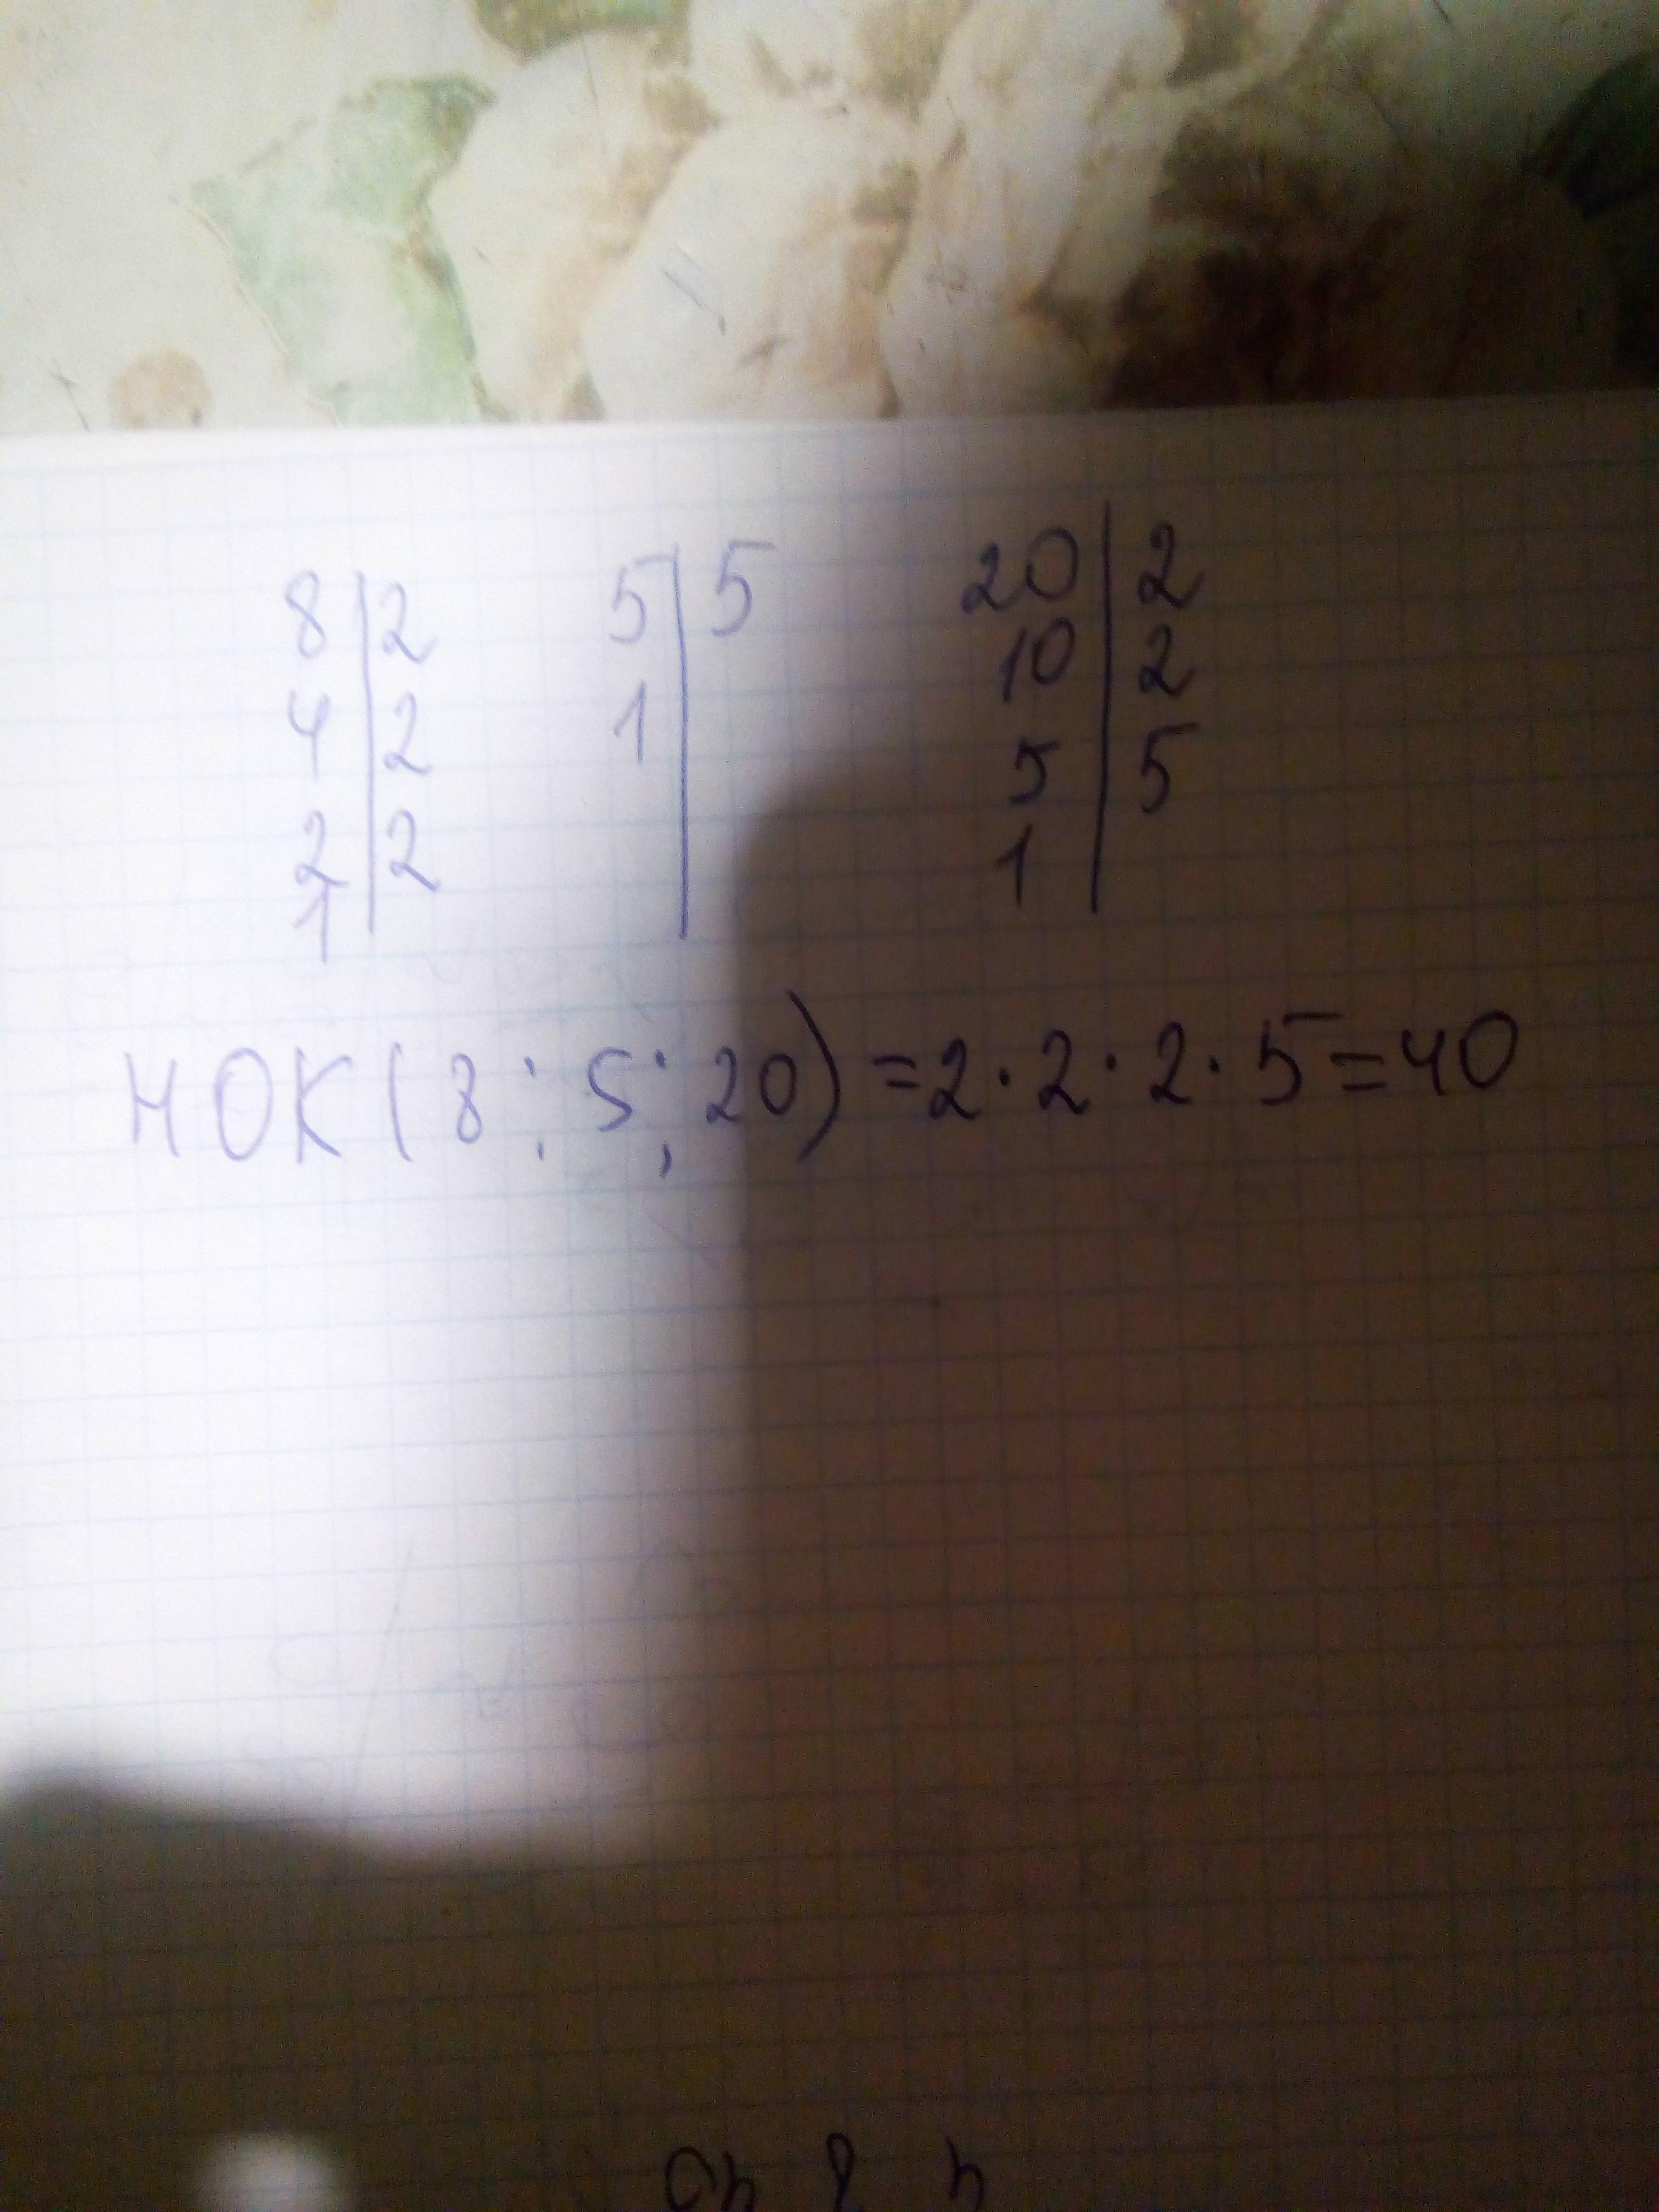 8 | 2 5 | 5 20 | 2
4 | 2 1 | 10 | 2
2 | 2 5 | 5
1 | 1 |
НОК (8; 5; 20) = 2 · 2 · 2 · 5 = 40